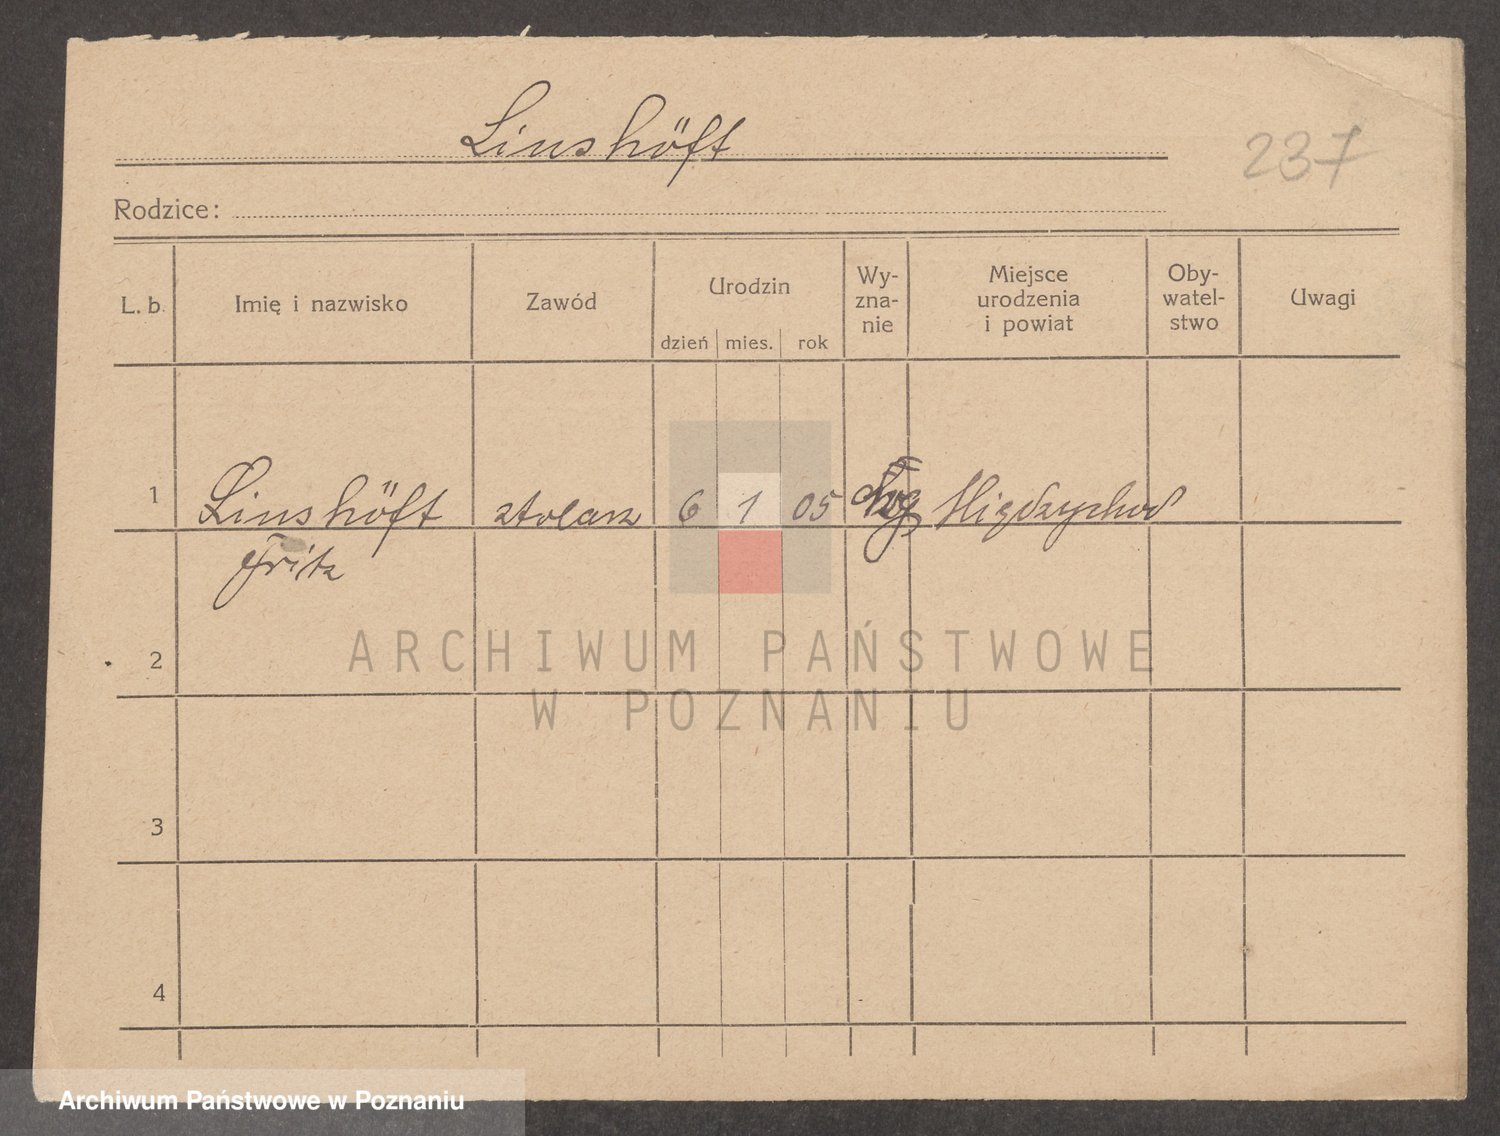 Linshöft
237
Rodzice:
L. b. Imię i nazwisko Zawód Urodzin dzień mies. rok Wy-zna-nie Miejsce urodzenia i powiat Oby-watel-stwo Uwagi
1 Linshöft stolarz 6 1 05 Międzychod
Fritz
2
3
4
ARCHIWUM PAŃSTWOWE
W POZNANIU
Archiwum Państwowe w Poznaniu